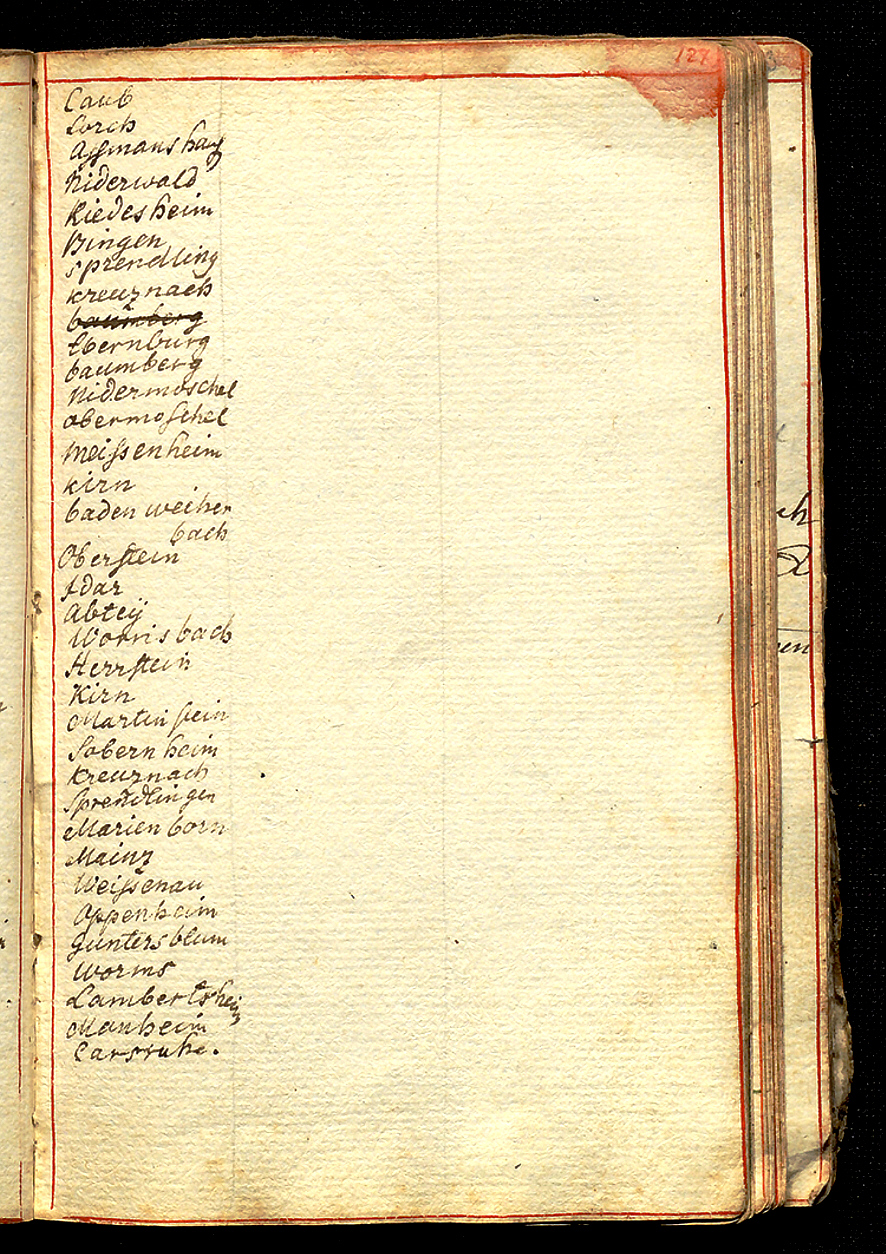 127
Caub
Lorch
Assmanshaus
Niderwald
Riedesheim
Bingen
sprendling
kreuznach
baumberg
Ebernburg
baumberg
Nidermoschel
obermoschel
Meissenheim
kirn
baden weiher
bach
Oberstein
Idar
Abteÿ
Worrisbach
Herrstein
Kirn
Martinstein
Sobernheim
kreuznach
Sprendlingen
Marienborn
Mainz
Weissenau
Oppenheim
guntersblum
Worms
Lambertsheim
Manheim
Carsruhe.
ch
en